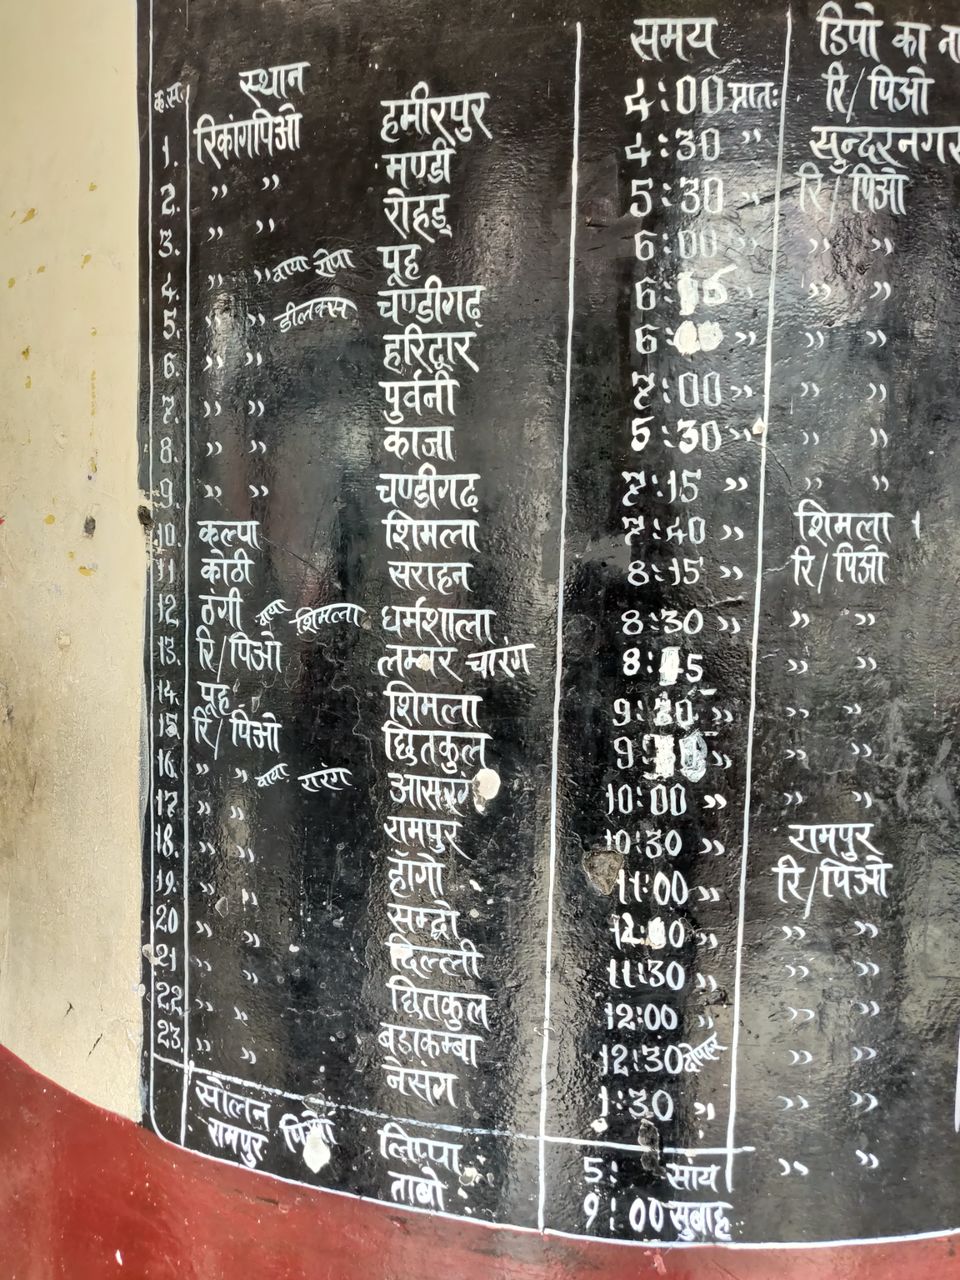 क.स. स्थान समय डिपो का ना
1. रिकांगपिओ हमीरपुर 4:00 प्रातः रि/पिओ
2. " " मण्डी 4:30 " सुन्दरनगर
3. " " रोहड़ू 5:30 " रि/पिओ
4. " " वाया रोपा पूह 6:00 " " "
5. " " डीलक्स चण्डीगढ़ 6: " "
6. " " हरिद्वार 6: " " "
7. " " पुर्वनी 7:00 " " "
8. " " काजा 5:30 " " "
9. " " चण्डीगढ़ 7:15 " " "
10. कल्पा शिमला 7:40 " शिमला
11 कोठी सराहन 8:15 " रि/पिओ
12 ठंगी वाया शिमला धर्मशाला 8:30 " " "
13. रि/पिओ लम्बर चारंग 8:45 " "
14. पूह शिमला 9: " " "
15 रि/पिओ छितकुल 9: " " "
16. " " वाया रारंग आसरंग 10:00 " " "
17. " " रामपुर 10:30 " रामपुर
18. " " हांगो 11:00 " रि/पिओ
19. " " सम्दो " " "
20 " " दिल्ली 11:30 " " "
21 " " छितकुल 12:00 " " "
22 " " बडाकम्बा 12:30 दोपहर " "
23. " " नेसंग 1:30 " " "
सोलन पिओ लिप्पा 5: सांय " "
रामपुर ताबो 9:00 सुबाह